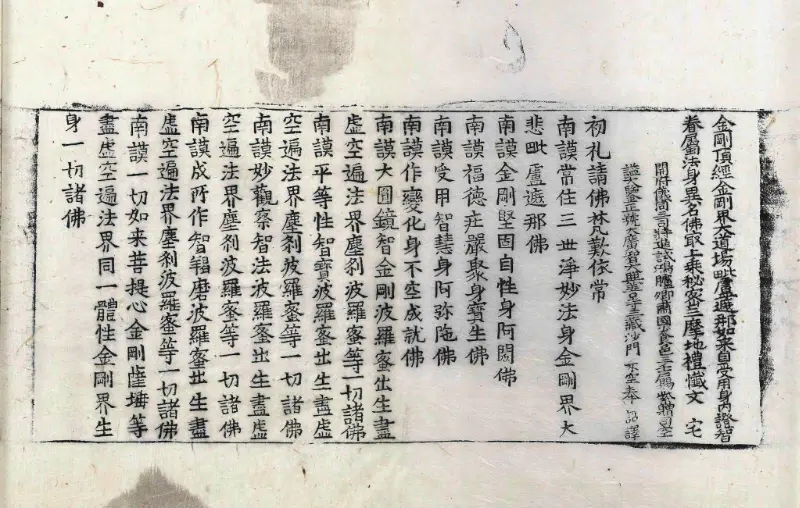 金剛頂經金剛界大道場毗盧遮那如來自受用身內證智
眷屬法身異名佛取上乘秘密三摩地禮懺文 宅
開府儀同三司特進試鴻臚卿肅國公食邑三千戶賜紫贈司空
謚大鑒正號大廣智大興善寺三藏沙門 不空奉 詔譯
初礼請佛梵歎依常
南謨常住三世淨妙法身金剛界大
悲毗盧遮那佛
南謨金剛堅固自性身阿閦佛
南謨福德莊嚴聚身寶生佛
南謨受用智慧身阿弥陁佛
南謨作變化身不空成就佛
南謨大圓鏡智金剛波羅蜜出生盡
虛空遍法界塵刹波羅蜜等一切諸佛
南謨平等性智寶波羅蜜出生盡虛
空遍法界塵刹波羅蜜等一切諸佛
南謨妙觀察智法波羅蜜出生盡虛
空遍法界塵刹波羅蜜等一切諸佛
南謨成所作智羯磨波羅蜜出生盡
虛空遍法界塵刹波羅蜜等一切諸佛
南謨一切如来菩提心金剛薩埵等
盡虛空遍法界同一體性金剛界生
身一切諸佛